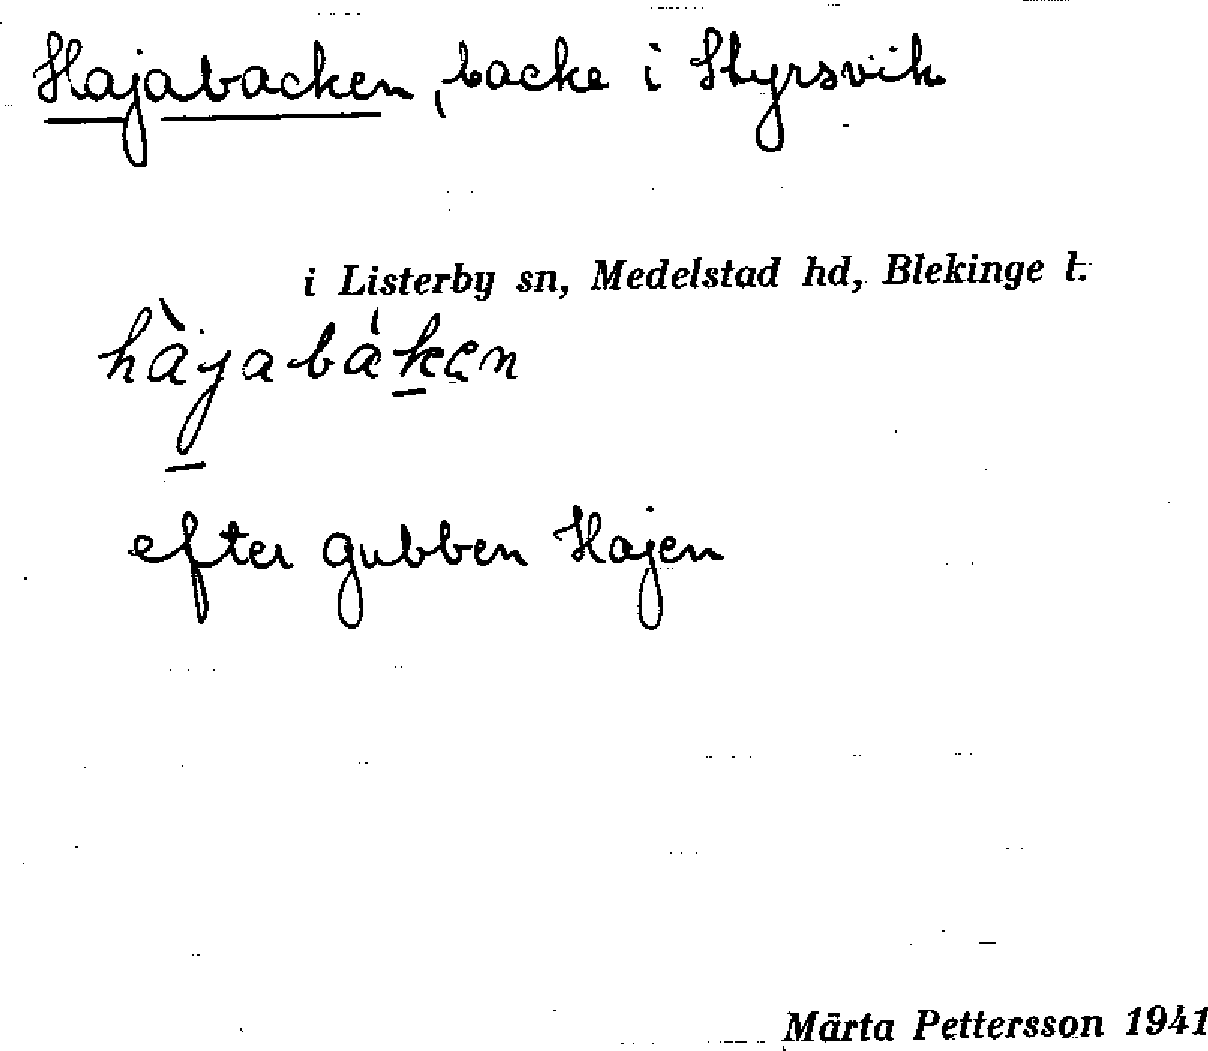 Hajabacken, backe i Styrsvik
i Listerby sn, Medelstad hd, Blekinge l.
hàjabáken
efter gubben Hajen
Märta Pettersson 1941